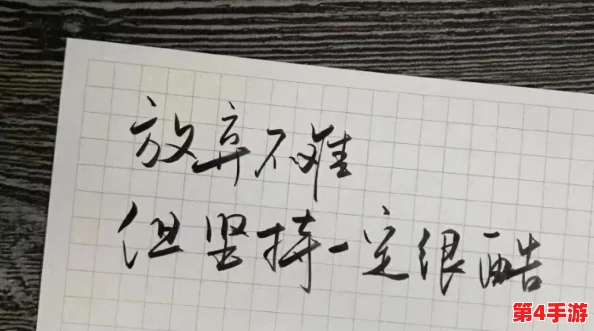 放弃不难
但坚持一定很酷
第4手游